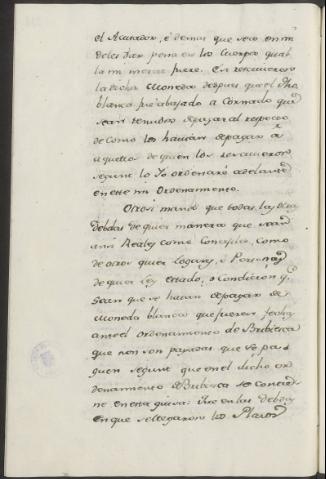 el Acusador, è demas que sea en mi
de les dar pena en los Cuerpos qual
la mi merced fuere. E si rescivieron
la dicha Moneda despues que el dho
blanco fue abajado a Cornado que
sean tenudos depagar al respecto
de Como los havian de pagar à
aquellos de quien los rescivieron
segunt lo Yo ordenaré adelante
en este mi Ordenamiento.
Otrosi mando que todas las otras
debdas de quier manera que sean
ansi Reales como Concejales, como
de otros quier Logares, ò Personas
de quier Ley estado, o Condicion q.
sean que se hayan de pagar de
Moneda blanca que fueron fechas
ante el ordenamiento de Bribiesca
que non son pagadas que se pa-
guen segunt que en el dicho or-
denamiento de Bribiesca se contie-
ne en esta guisa: Que en las debdas
en que se llegaron los Plazos